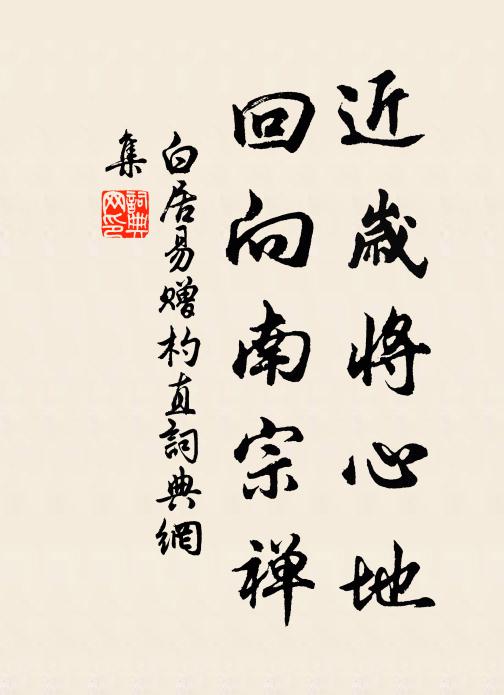 近歲將心地
回向南宗禅
白居易赠杓直詞典網
集
詞典网印